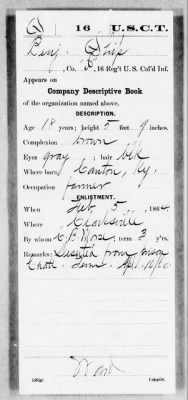 16 U.S.C.T.
Benj.
, Co. "B", 16 Reg't U.S. Col'd Inf.
Appears on
Company Descriptive Book
of the organization named above.
DESCRIPTION.
Age 18 years; height 5 feet 9 inches.
Complexion brown
Eyes gray; hair blk
Where born Canton, Ky.
Occupation farmer
ENLISTMENT.
When Feb. 5, 1864
Where Clarksville
By whom C. B. Morse; term 3 y'rs.
Remarks: Deserted from prison
Chatt. Tenn. Apl.
Copyist.